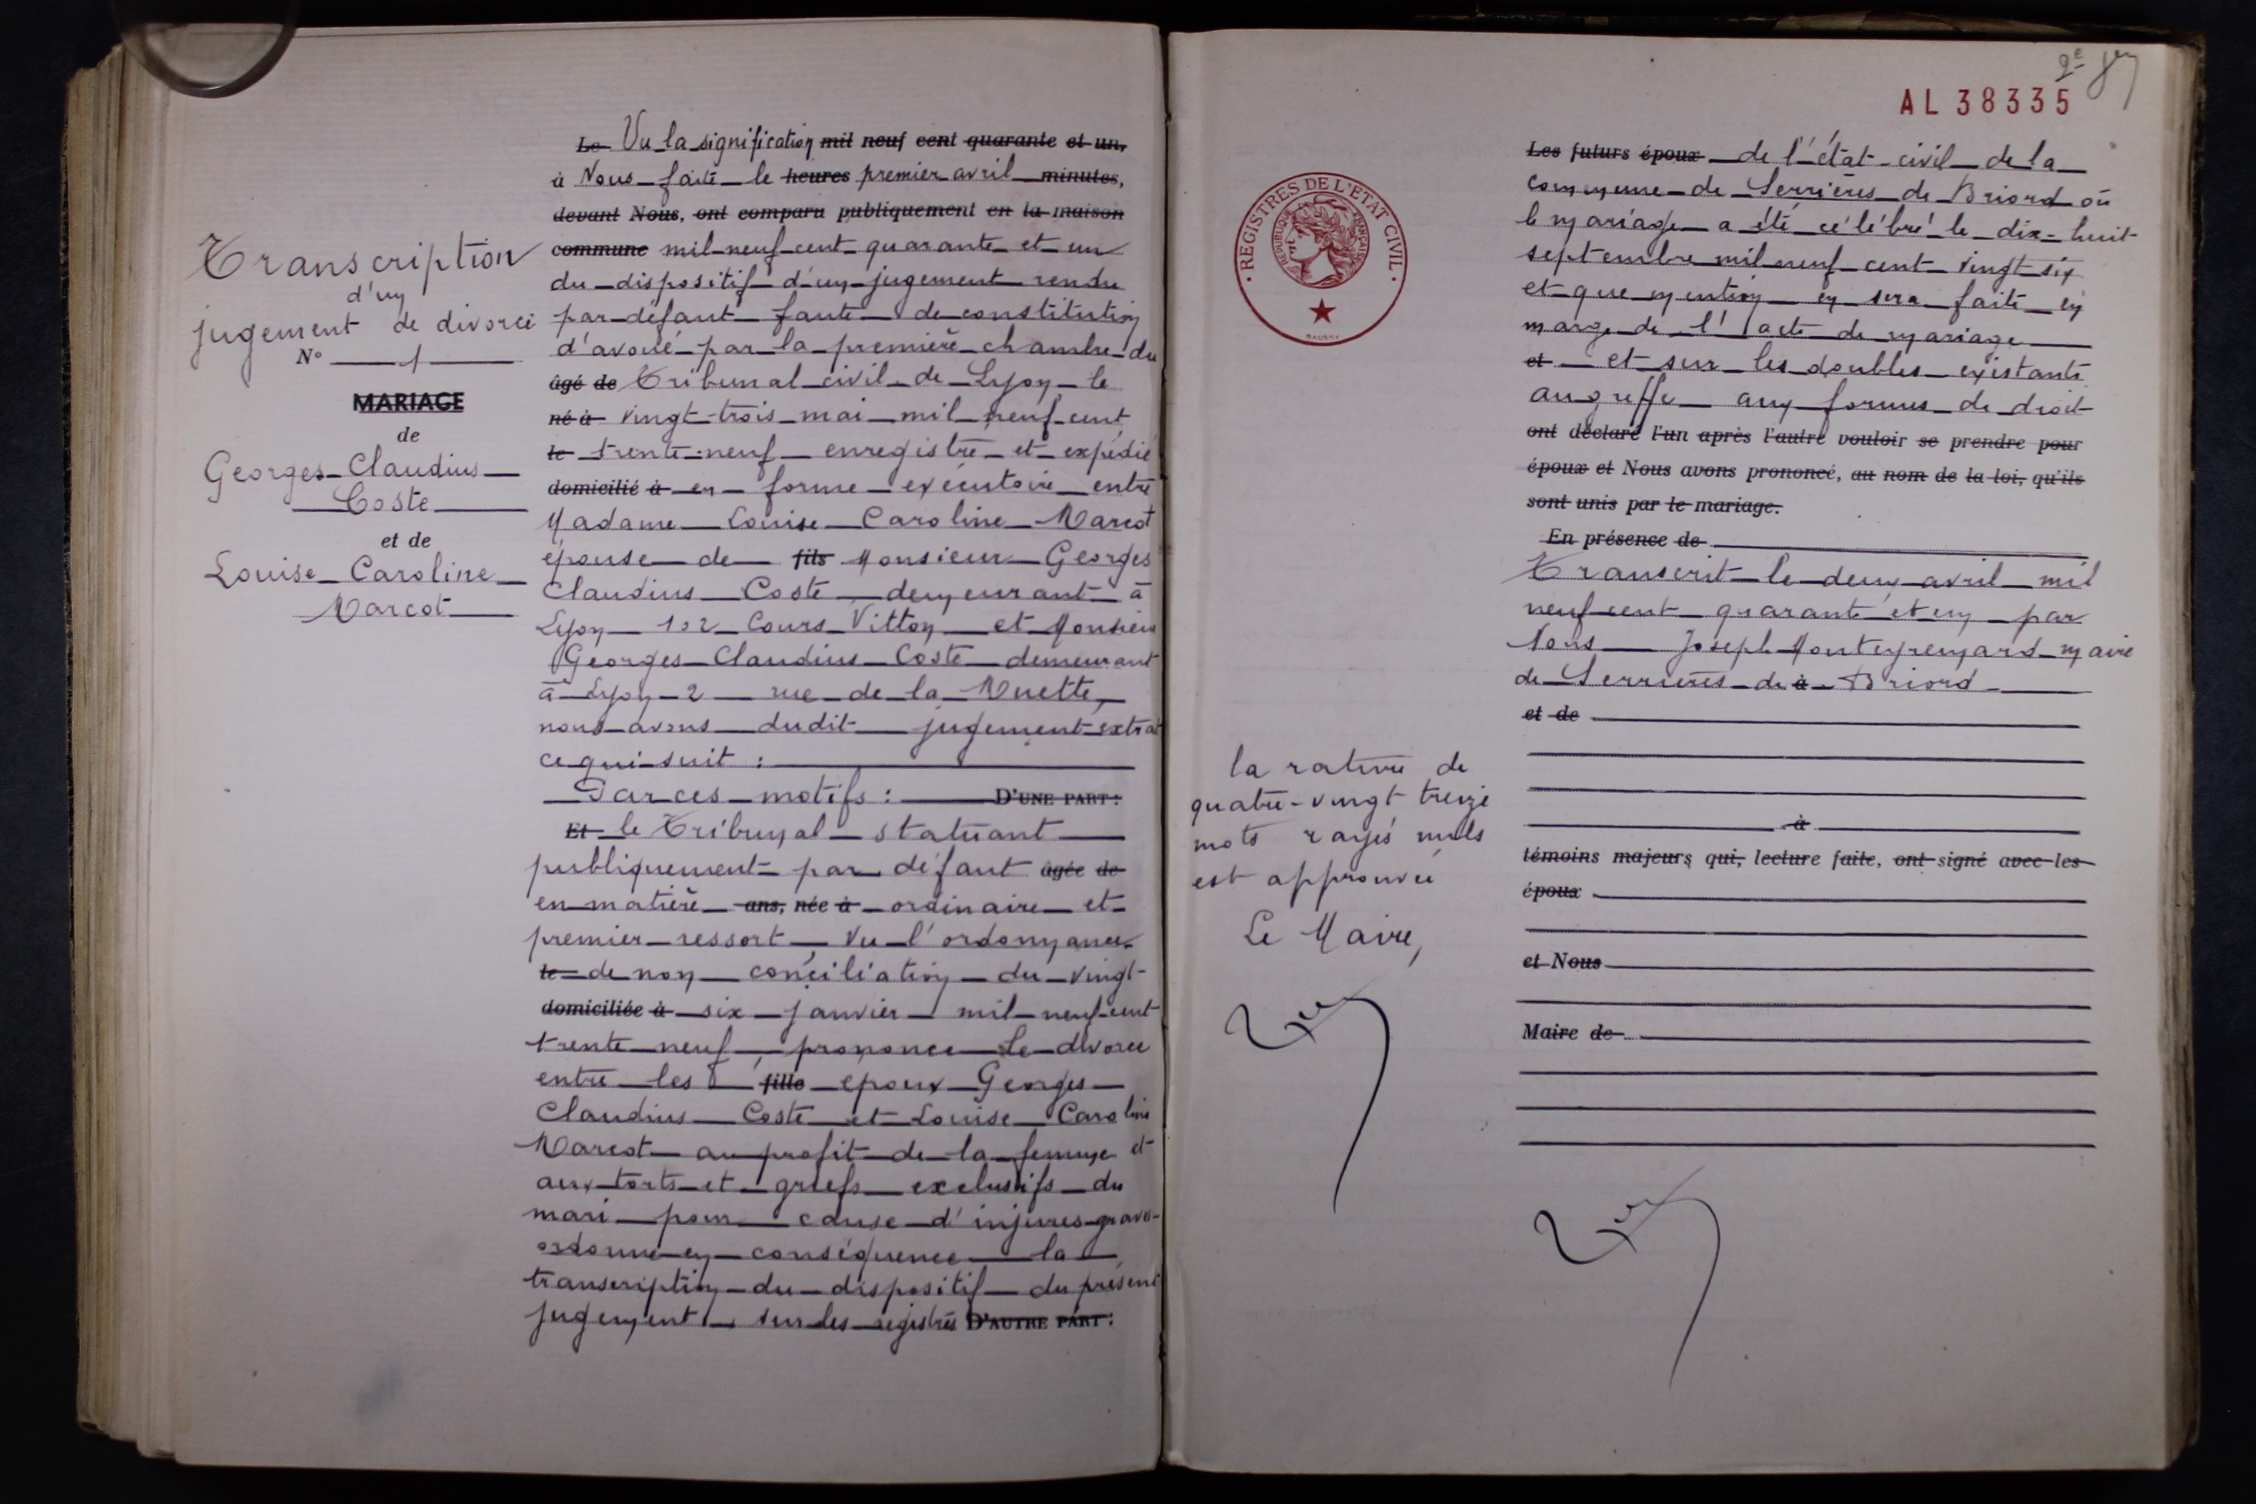 Transcription
d'un
jugement de divorce
N° 1
MARIAGE
de
Georges Claudius
Coste
et de
Louise Caroline
Marcot
Le Vu la signification mil neuf cent quarante et un,
à Nous faite le heures premier avril minutes,
devant Nous, ont comparu publiquement en la maison
commune mil neuf cent quarante et un
du dispositif d'un jugement rendu
par défaut faute de constitution
d'avoué par la première chambre du
âgé de Tribunal civil de Lyon le
né à vingt-trois mai mil neuf cent
le trente-neuf enregistré et expédié
domicilié à en forme exécutoire entre
Madame Louise Caroline Marcot
épouse de fils Monsieur Georges
Claudius Coste demeurant à
Lyon 102 Cours Vitton et Monsieur
Georges Claudius Coste demeurant
à Lyon 2 rue de la Muette,
nous avons dudit jugement extrait
ce qui suit :
Par ces motifs : D'UNE PART :
Et le Tribunal statuant
publiquement par défaut âgée de
en matière ans, née à ordinaire et
premier ressort, Vu l'ordonnance
le de non conciliation du vingt-
domiciliée à six janvier mil neuf cent
trente neuf, prononce le divorce
entre les fille époux Georges
Claudius Coste et Louise Caroline
Marcot au profit de la femme et
aux torts et griefs exclusifs du
mari pour cause d'injures graves
ordonne en conséquence la
transcription du dispositif du présent
jugement sur les registres D'AUTRE PART :
2e
AL 38335
REGISTRES DE L'ÉTAT CIVIL
REPUBLIQUE FRANÇAISE
Les futurs époux de l'état civil de la
commune de Serrières de Briord où
le mariage a été célébré le dix-huit
septembre mil neuf cent vingt six
et que mention en sera faite en
marge de l'acte de mariage
et et sur les doubles existants
au greffe aux formes de droit
ont déclaré l'un après l'autre vouloir se prendre pour
époux et Nous avons prononcé, au nom de la loi, qu'ils
sont unis par le mariage.
En présence de
Transcrit le deux avril mil
neuf cent quarante et un par
Nous Joseph Monteyremard maire
de Serrières de à Briord
et de
à
témoins majeurs qui, lecture faite, ont signé avec les
époux
et Nous
Maire de
la rature de
quatre-vingt treize
mots rayés nuls
est approuvée
Le Maire,